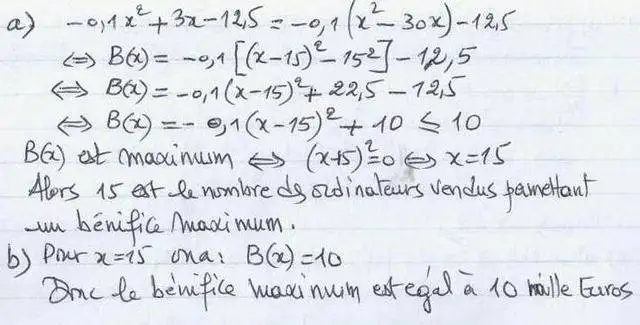 a) -0,1x²+3x-12,5 = -0,1(x²-30x)-12,5
⇔ B(x) = -0,1[(x-15)²-15²]-12,5
⇔ B(x) = -0,1(x-15)²+22,5-12,5
⇔ B(x) = -0,1(x-15)²+10 ≤ 10
B(x) est maximum ⇔ (x+15)²=0 ⇔ x=15
Alors 15 est le nombre ds ordinateurs vendus pamettant
un bénifice maximum.
b) Pour x=15 ona: B(x)=10
Donc le bénifice maximum est égal à 10 mille Euros